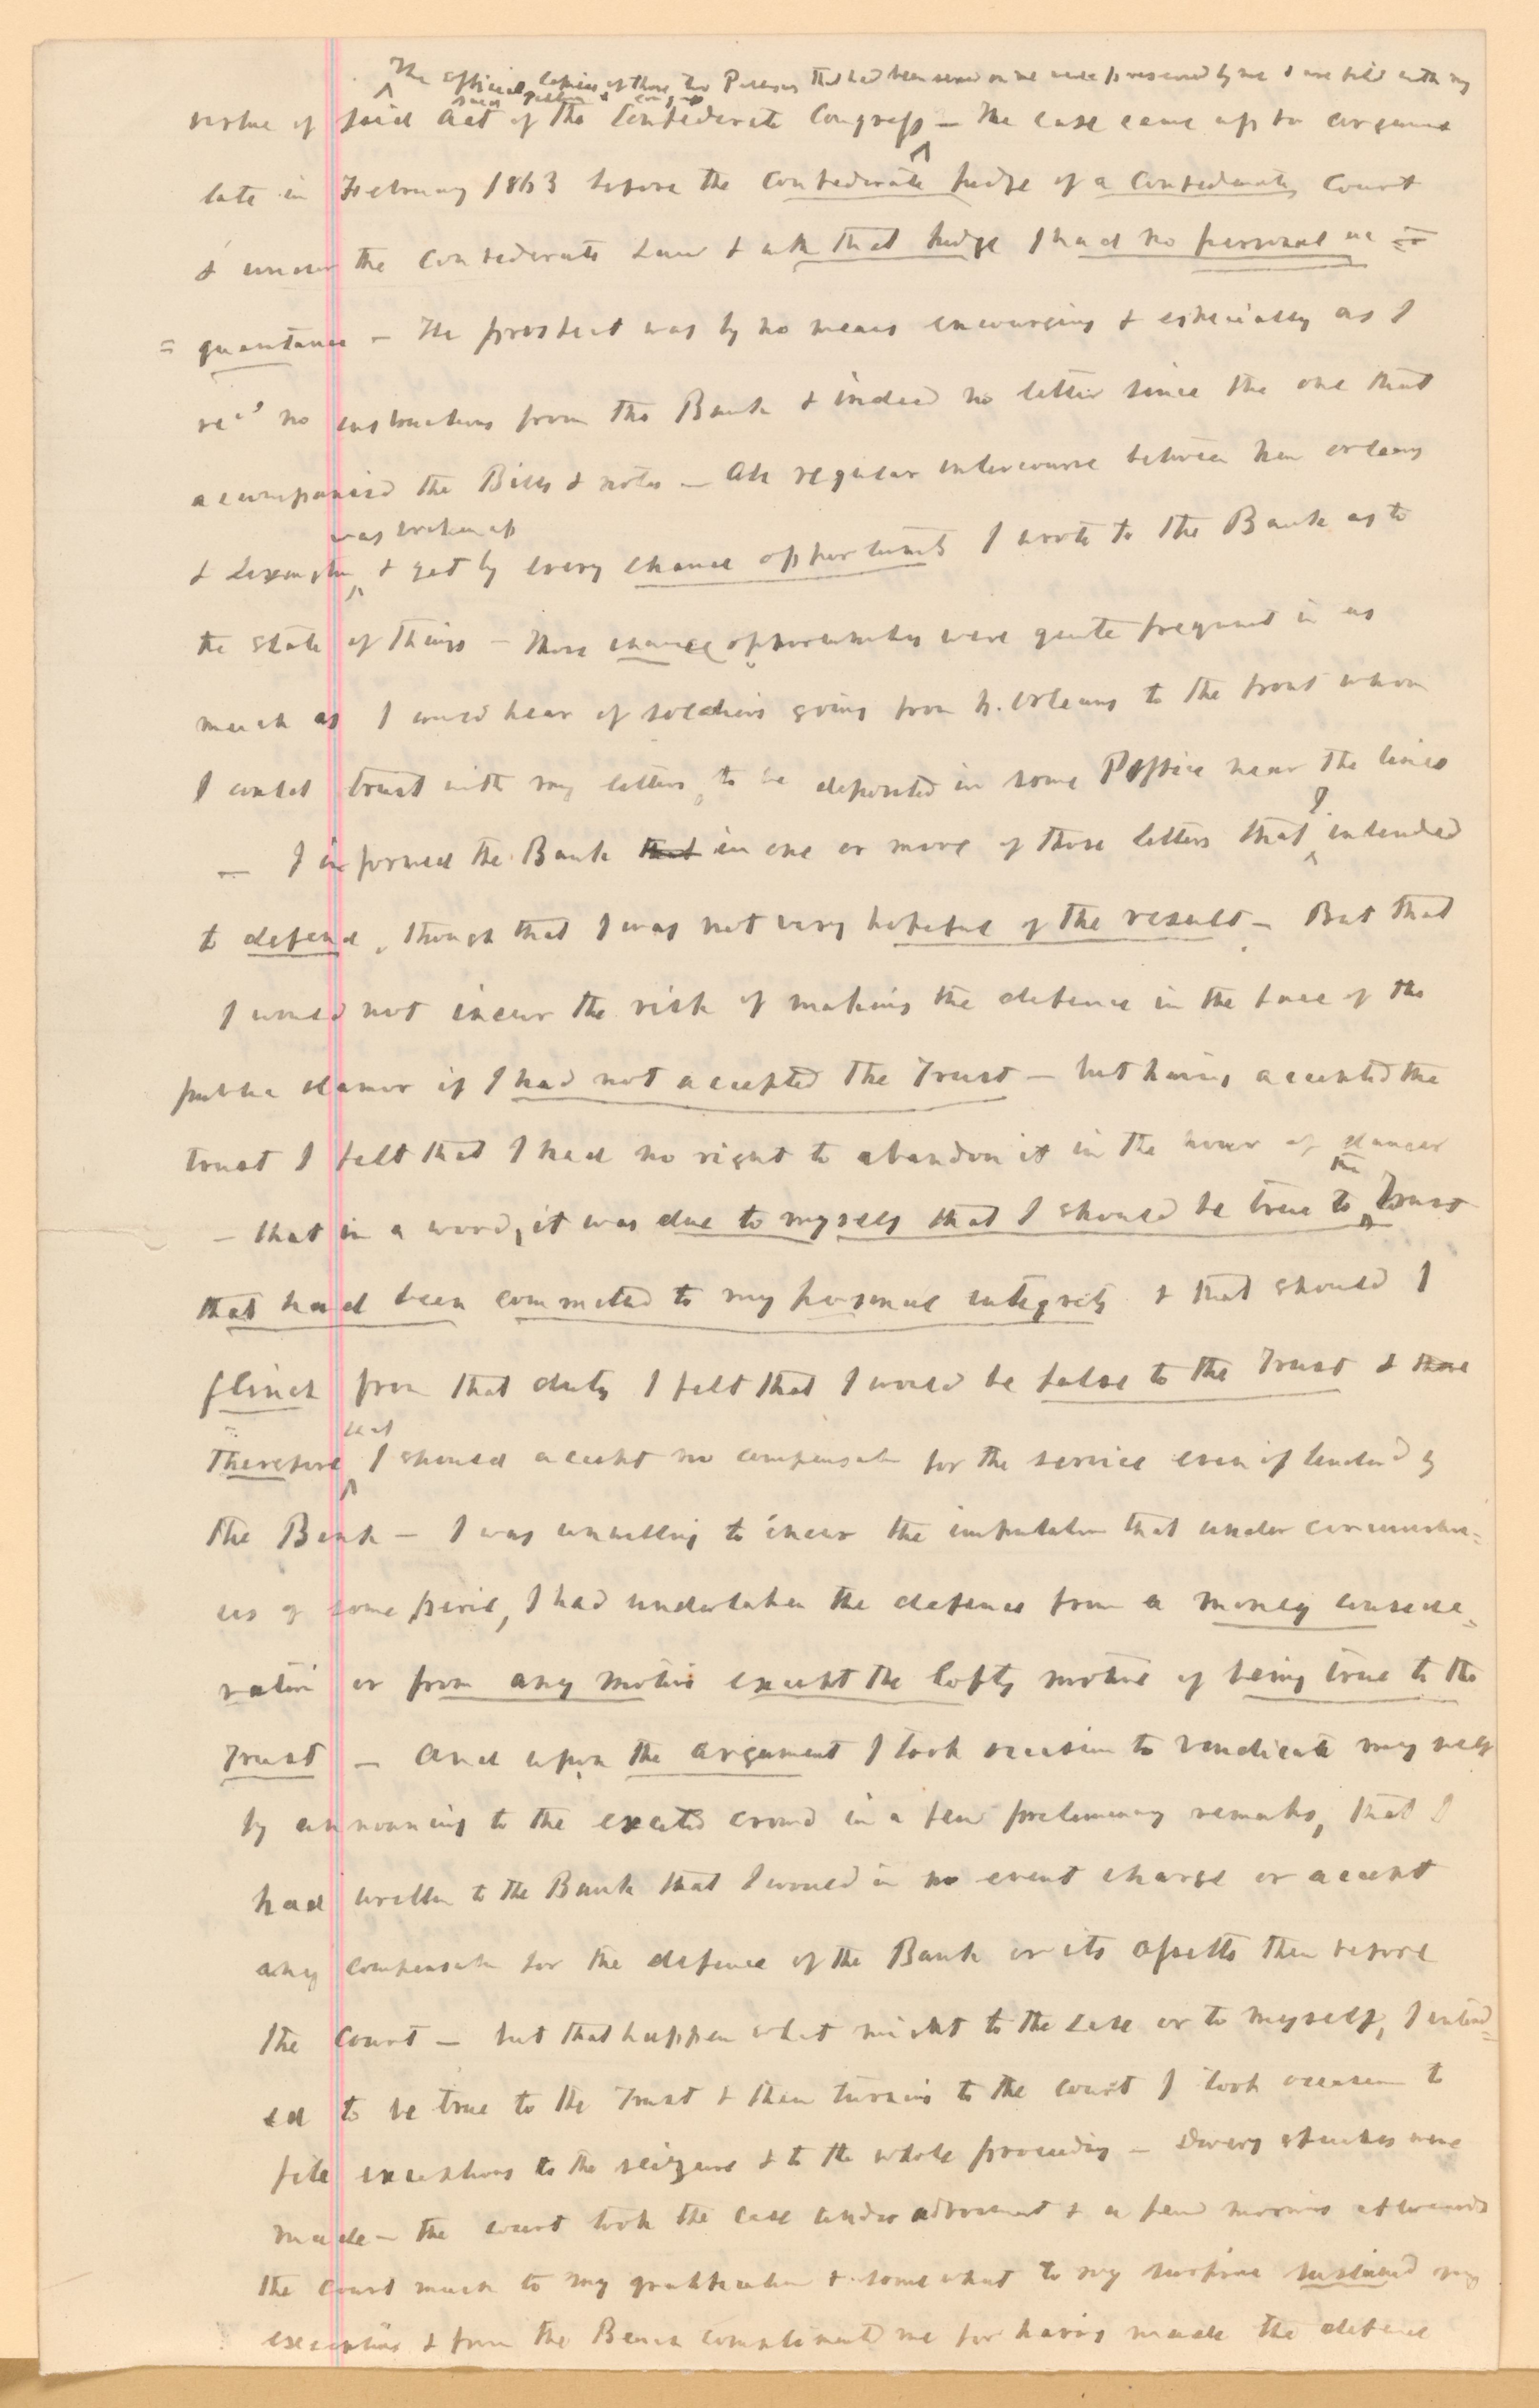 The official copies of those two Petitions that had been served on me were preserved by me & are filed with my
virtue of said Act of the Confederate Congress — The case came up for argument
late in February 1863 before the Confederate judge of a Confederate Court
& under the Confederate Law & with that judge I had no personal ac =
= quaintance — The prospect was by no means encouraging & especially as I
recd no instructions from the Bank & indeed no letter since the one that
accompanied the Bills & notes — All regular intercourse between New Orleans
was broken up
& Lexington & yet by every chance opportunity I wrote to the Bank as to
the state of things — Those chance opportunities were quite frequent in as
much as I would hear of soldiers going from N. Orleans to the front whom
I could trust with my letters, to be deposited in some P office near the lines
— I informed the Bank that in one or more of those letters that I intended
to defend, though that I was not very hopeful of the result — But that
I would not incur the risk of making the defence in the face of the
public clamor if I had not accepted the Trust — but having accepted the
trust I felt that I had no right to abandon it in the hour of danger
the
— that in a word, it was due to myself that I should be true to Trust
that had been committed to my personal integrity & that should I
flinch from that duty I felt that I would be false to the Trust &
that
Therefore I should accept no compensation for the service even if tendered by
the Bank — I was unwilling to incur the imputation that under circumstan=
ces of some peril, I had undertaken the defence from a money conside=
ration or from any motive except the lofty motive of being true to the
Trust — And upon the argument I took occasion to vindicate myself
by announcing to the excited crowd in a few preliminary remarks, that I
had written to the Bank that I would in no event charge or accept
any compensation for the defence of the Bank or its assetts then before
the Court — but that happen what might to the case or to myself, I intend=
ed to be true to the Trust & then turning to the Court I took occasion to
file exceptions to the seizure & to the whole proceeding — Divers speeches were
made — the court took the case under advisement & a few mornings afterwards
the court much to my gratification & somewhat to my surprise sustained my
exceptions & from the Bench complimented me for having made the defence